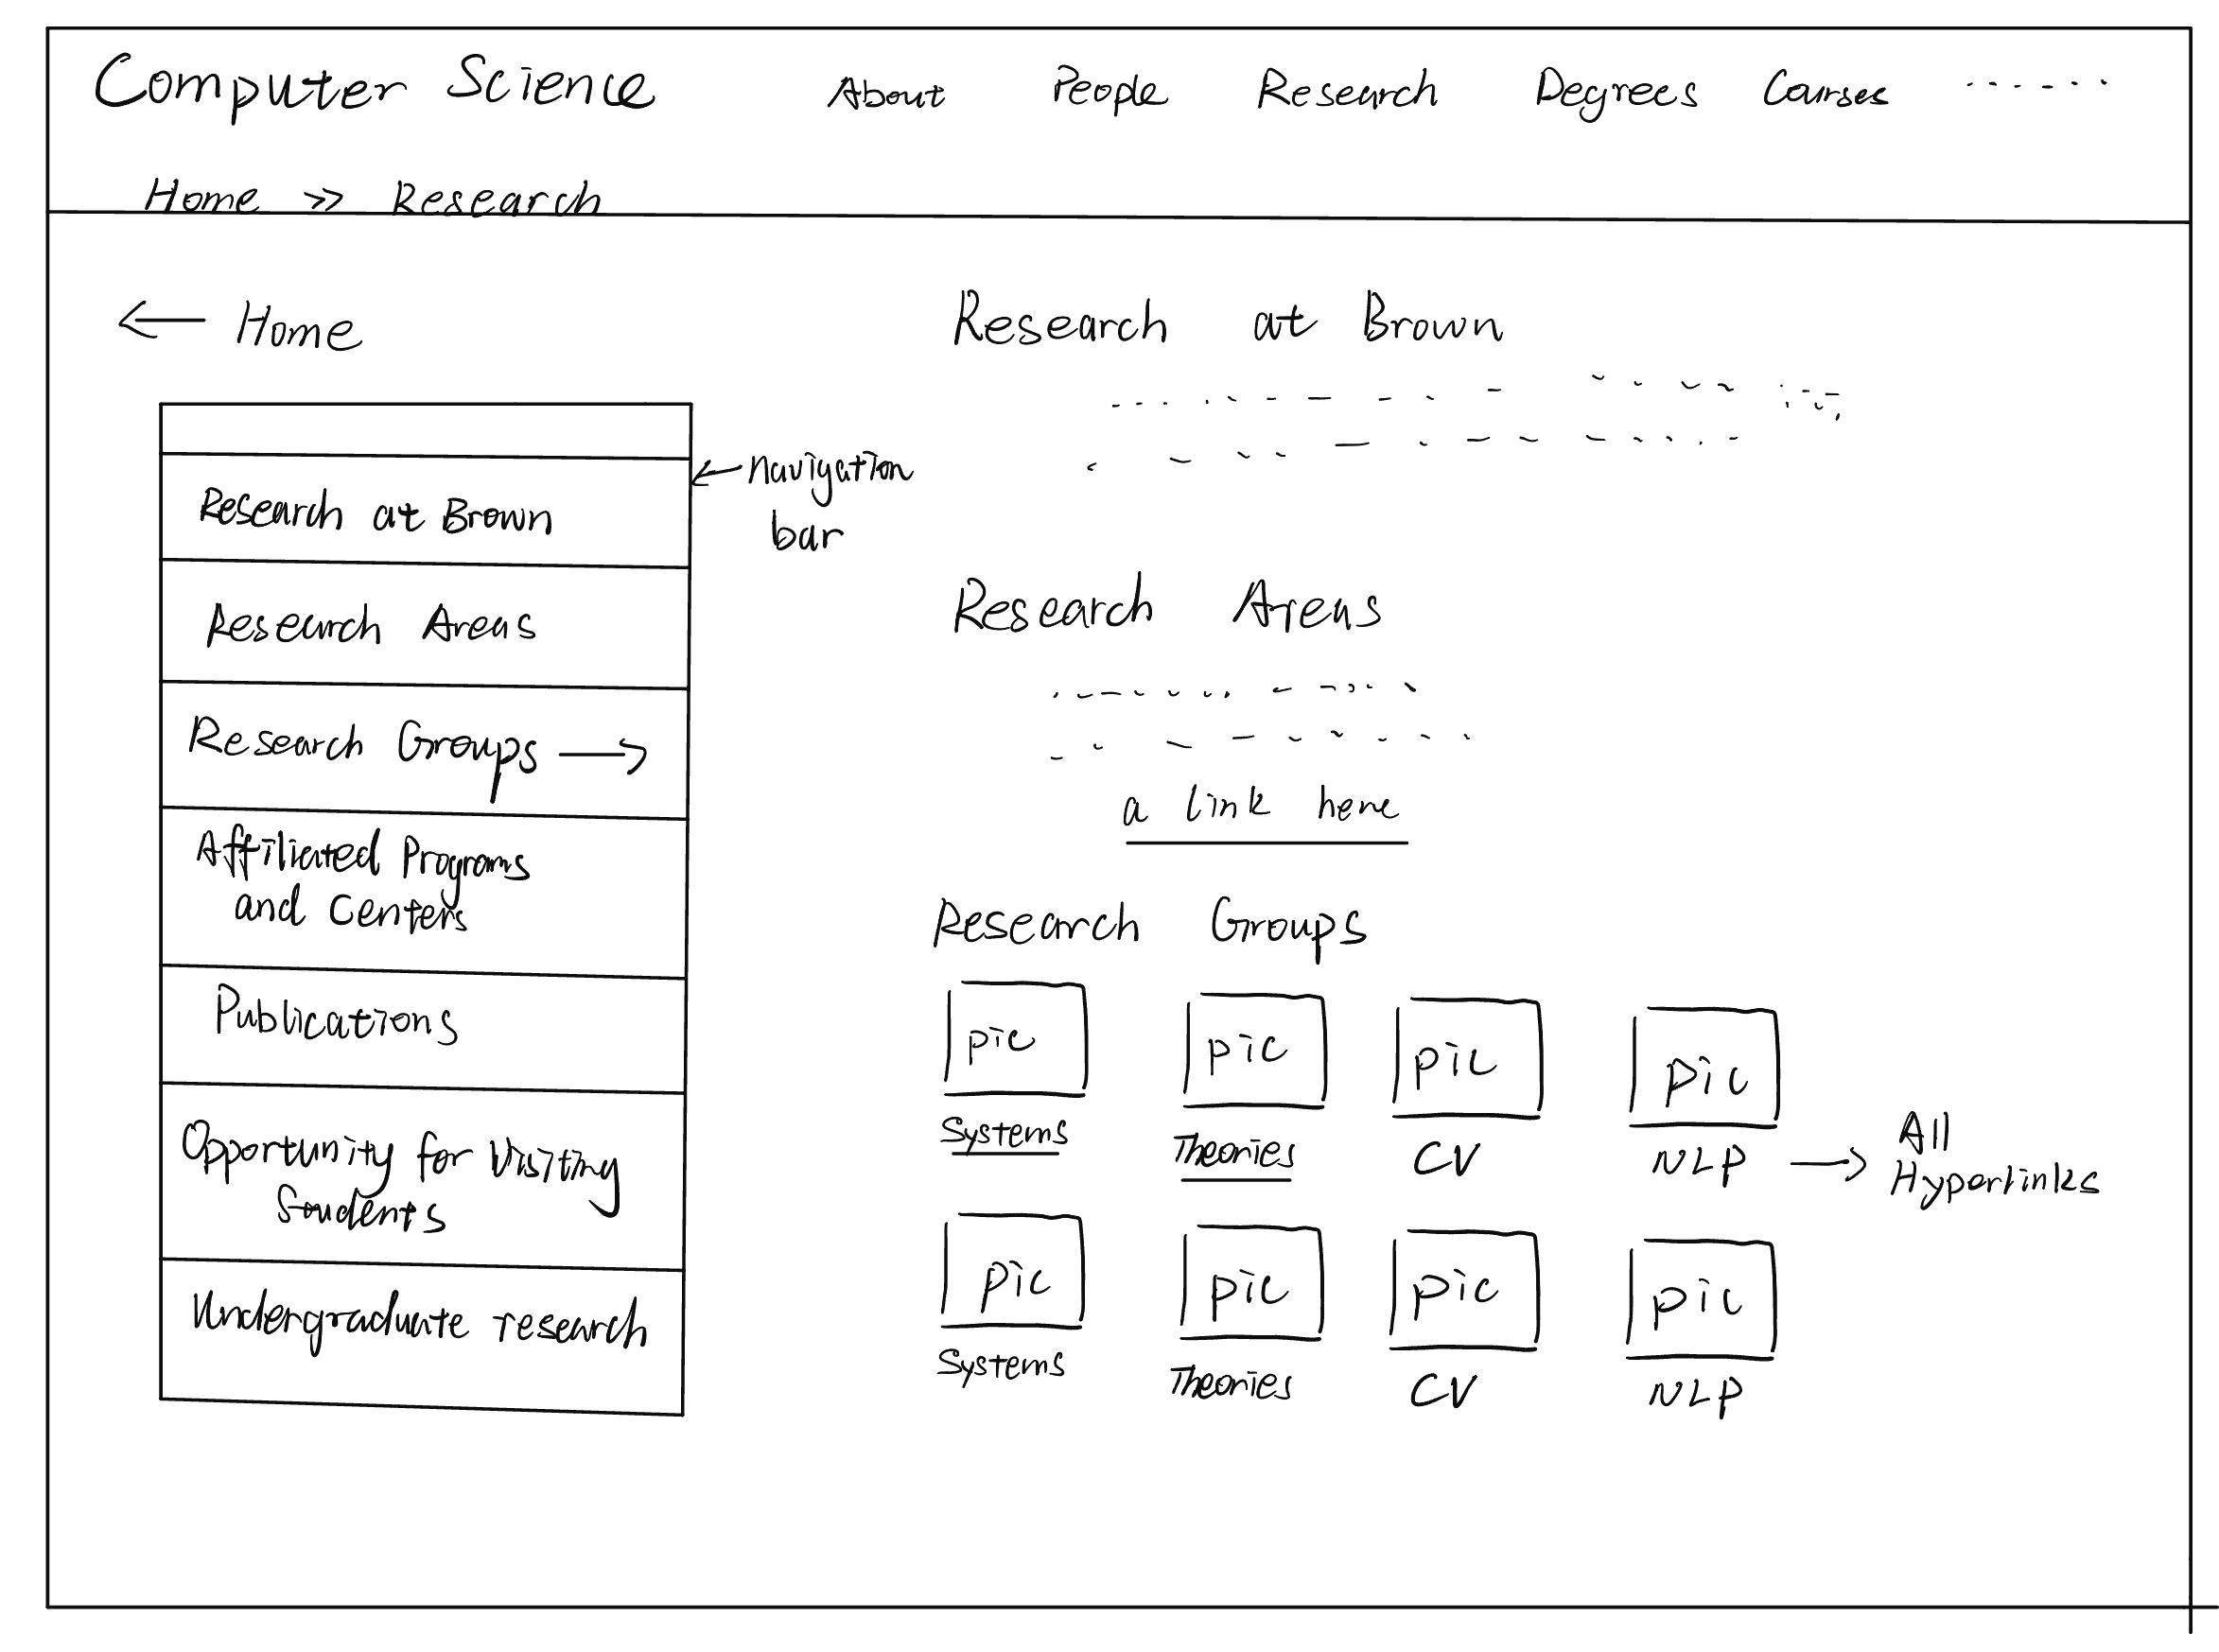 Computer Science About People Research Degrees Courses ......
Home >> Research
← Home
Research at Brown
Research Areas
Research Groups →
Affiliated Programs
and Centers
Publications
Opportunity for Visiting
Students
Undergraduate research
← navigation
bar
Research at Brown
Research Areas
a link here
Research Groups
pic pic pic pic
Systems Theories CV NLP → All
Hyperlinks
pic pic pic pic
Systems Theories CV NLP